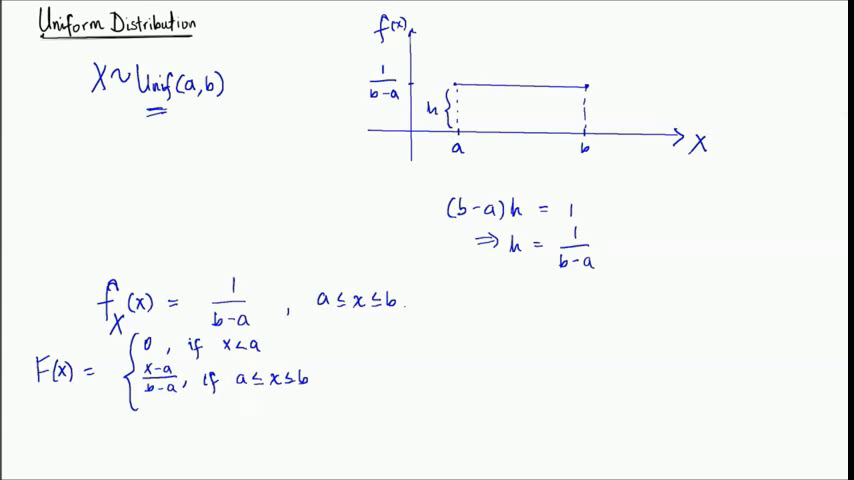 Uniform Distribution
X ~ Unif(a,b)
f(x)
1/(b-a)
h {
a
b
X
(b-a)h = 1
⇒ h = 1/(b-a)
f_X(x) = 1/(b-a) , a ≤ x ≤ b.
F(x) = { 0 , if x < a
(x-a)/(b-a) , if a ≤ x ≤ b